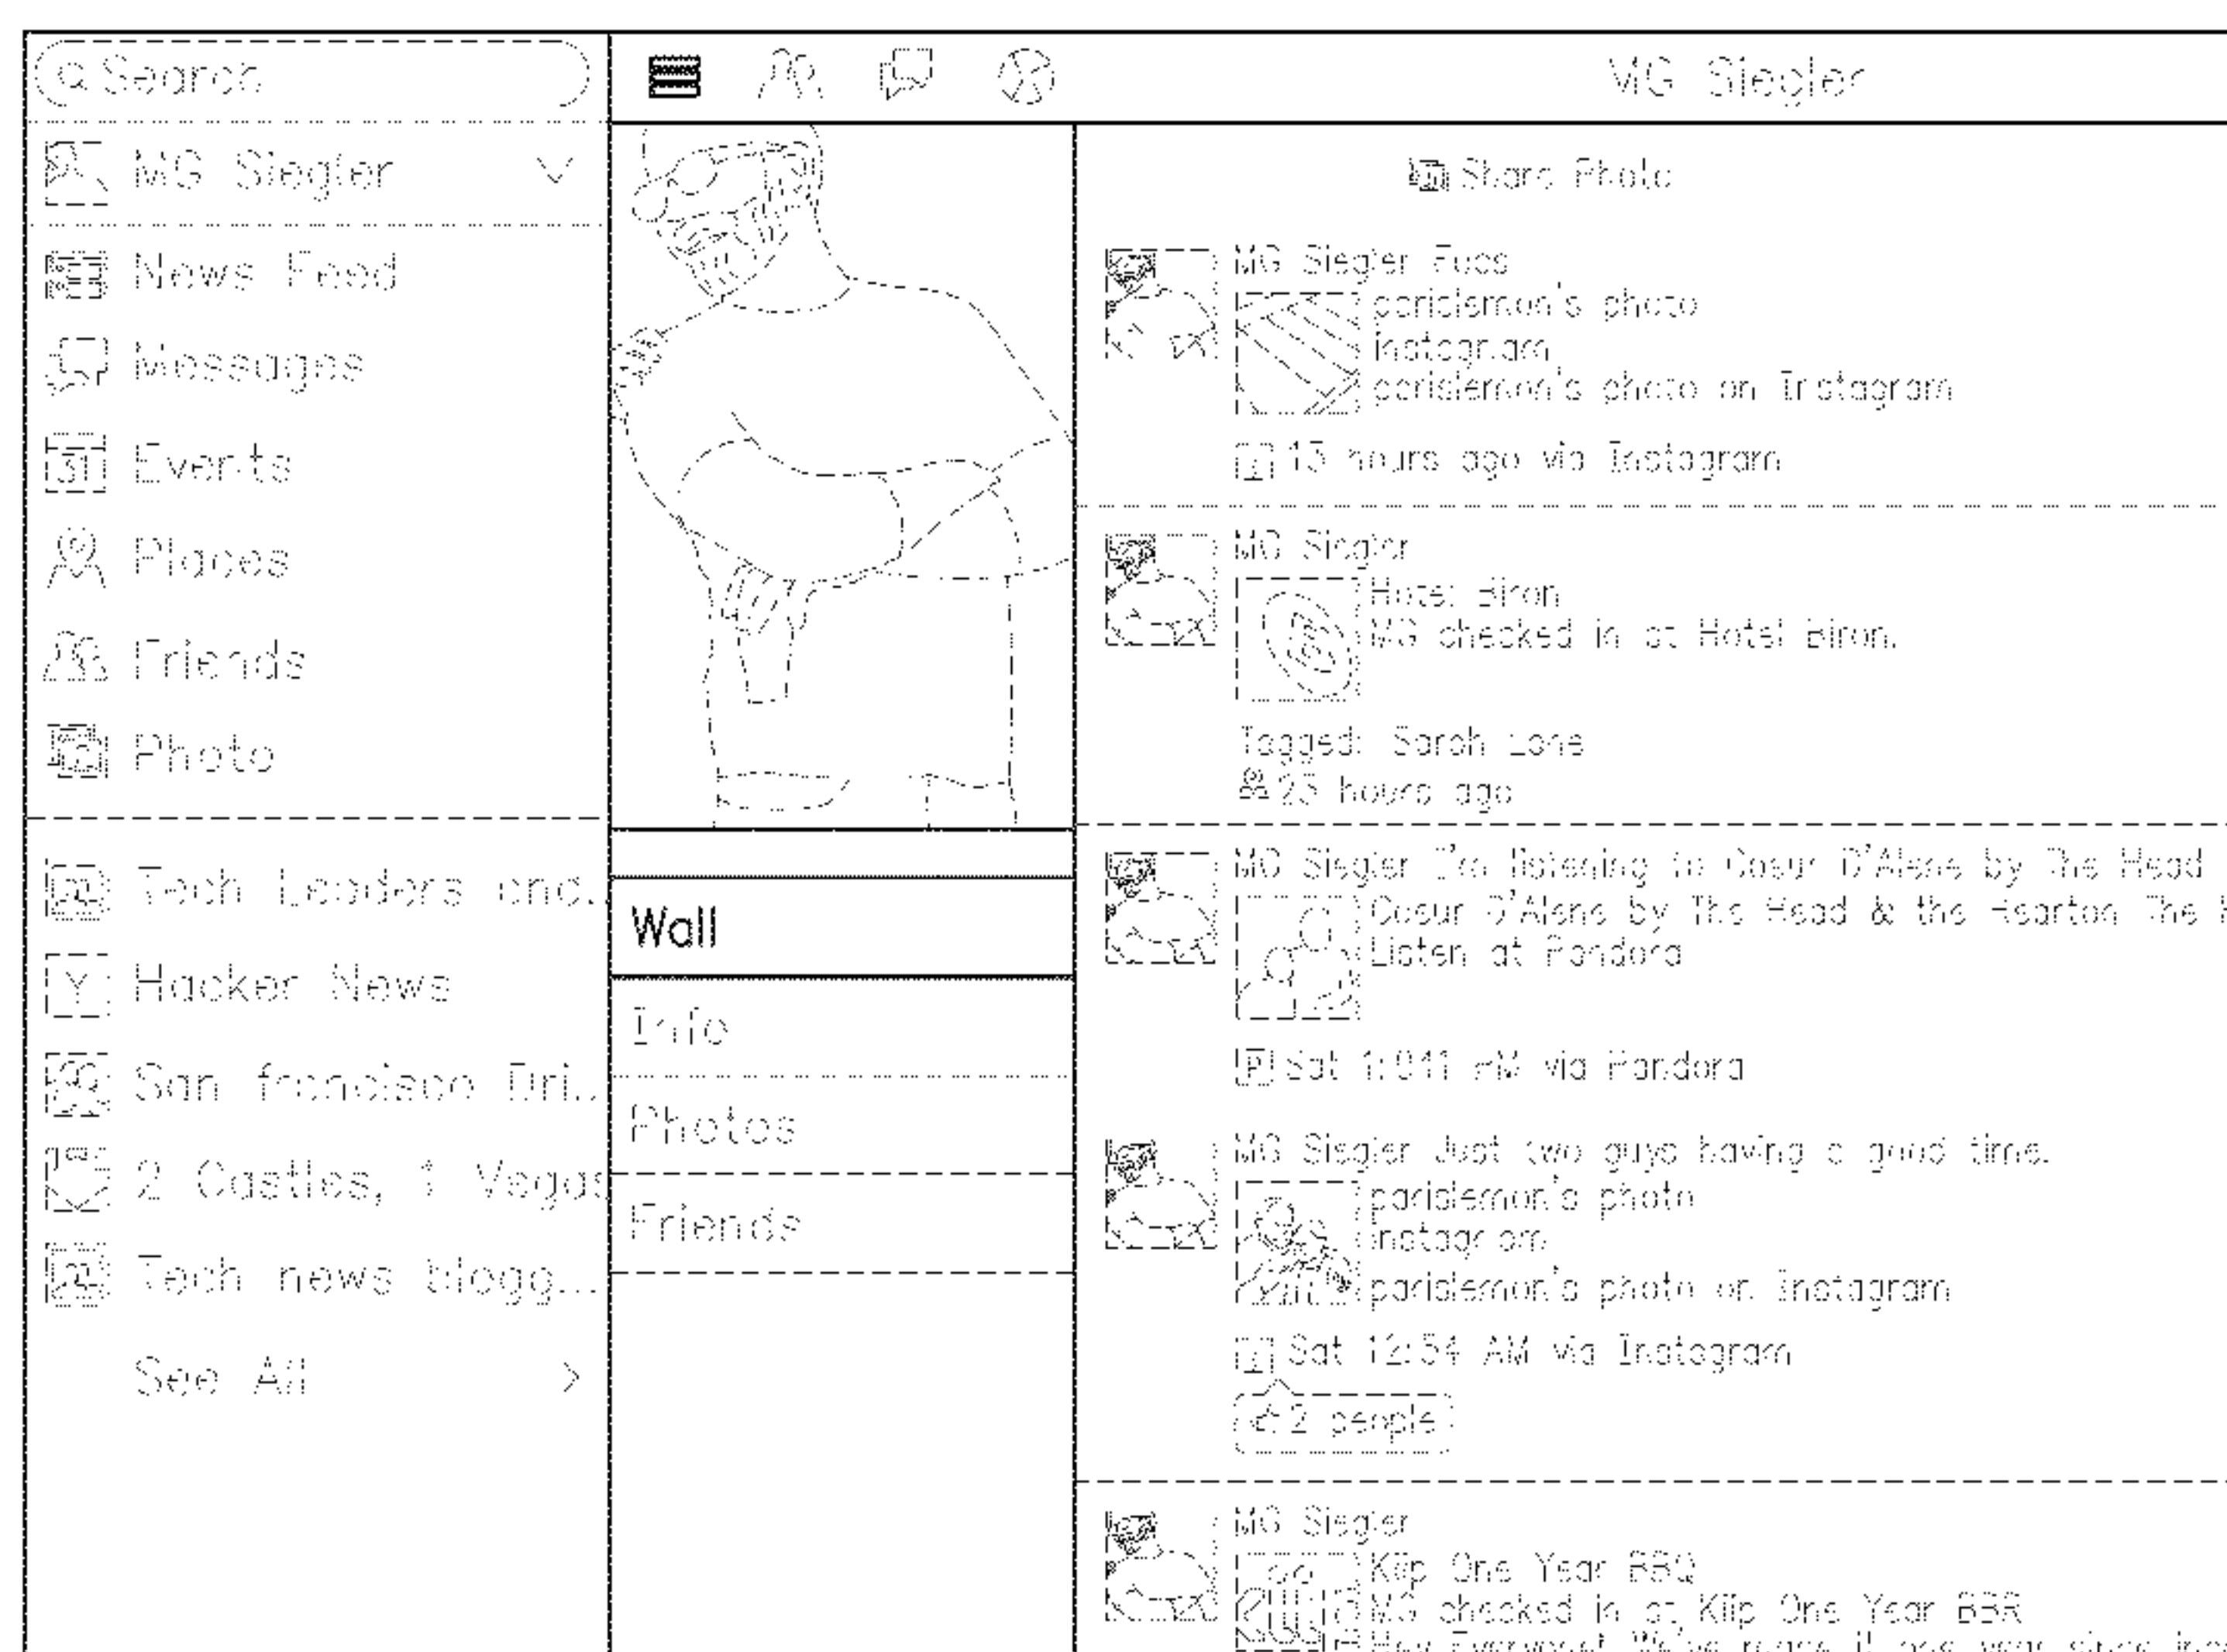 Search
MG Siegler
MG Siegler
News Feed
Messages
31
Events
Places
Friends
Photo
Tech Leaders and.
Y
Hacker News
San francisco Dri..
2 Castles, 1 Vegas
Tech news blogg...
See All
Wall
Info
Photos
Friends
Share Photo
MG Siegler
parislemon's photo
instagram
parislemon's photo on Instagram
13 hours ago via Instagram
MG Siegler
Hotel Biron
MG checked in at Hotel Biron.
Tagged: Sarah Lane
23 hours ago
MG Siegler I'm listening to Coeur D'Alene by The Head
Coeur D'Alene by The Head & the Hearton The
Listen at Pandora
P
Sat 1:041 PM via Pandora
MG Siegler Just two guys having a good time.
parislemon's photo
instagram
parislemon's photo on Instagram
Sat 12:54 AM via Instagram
2 people
MG Siegler
Kiip One Year BBQ
MG checked in at Kiip One Year BBR
Hey Everyone! We've one year since